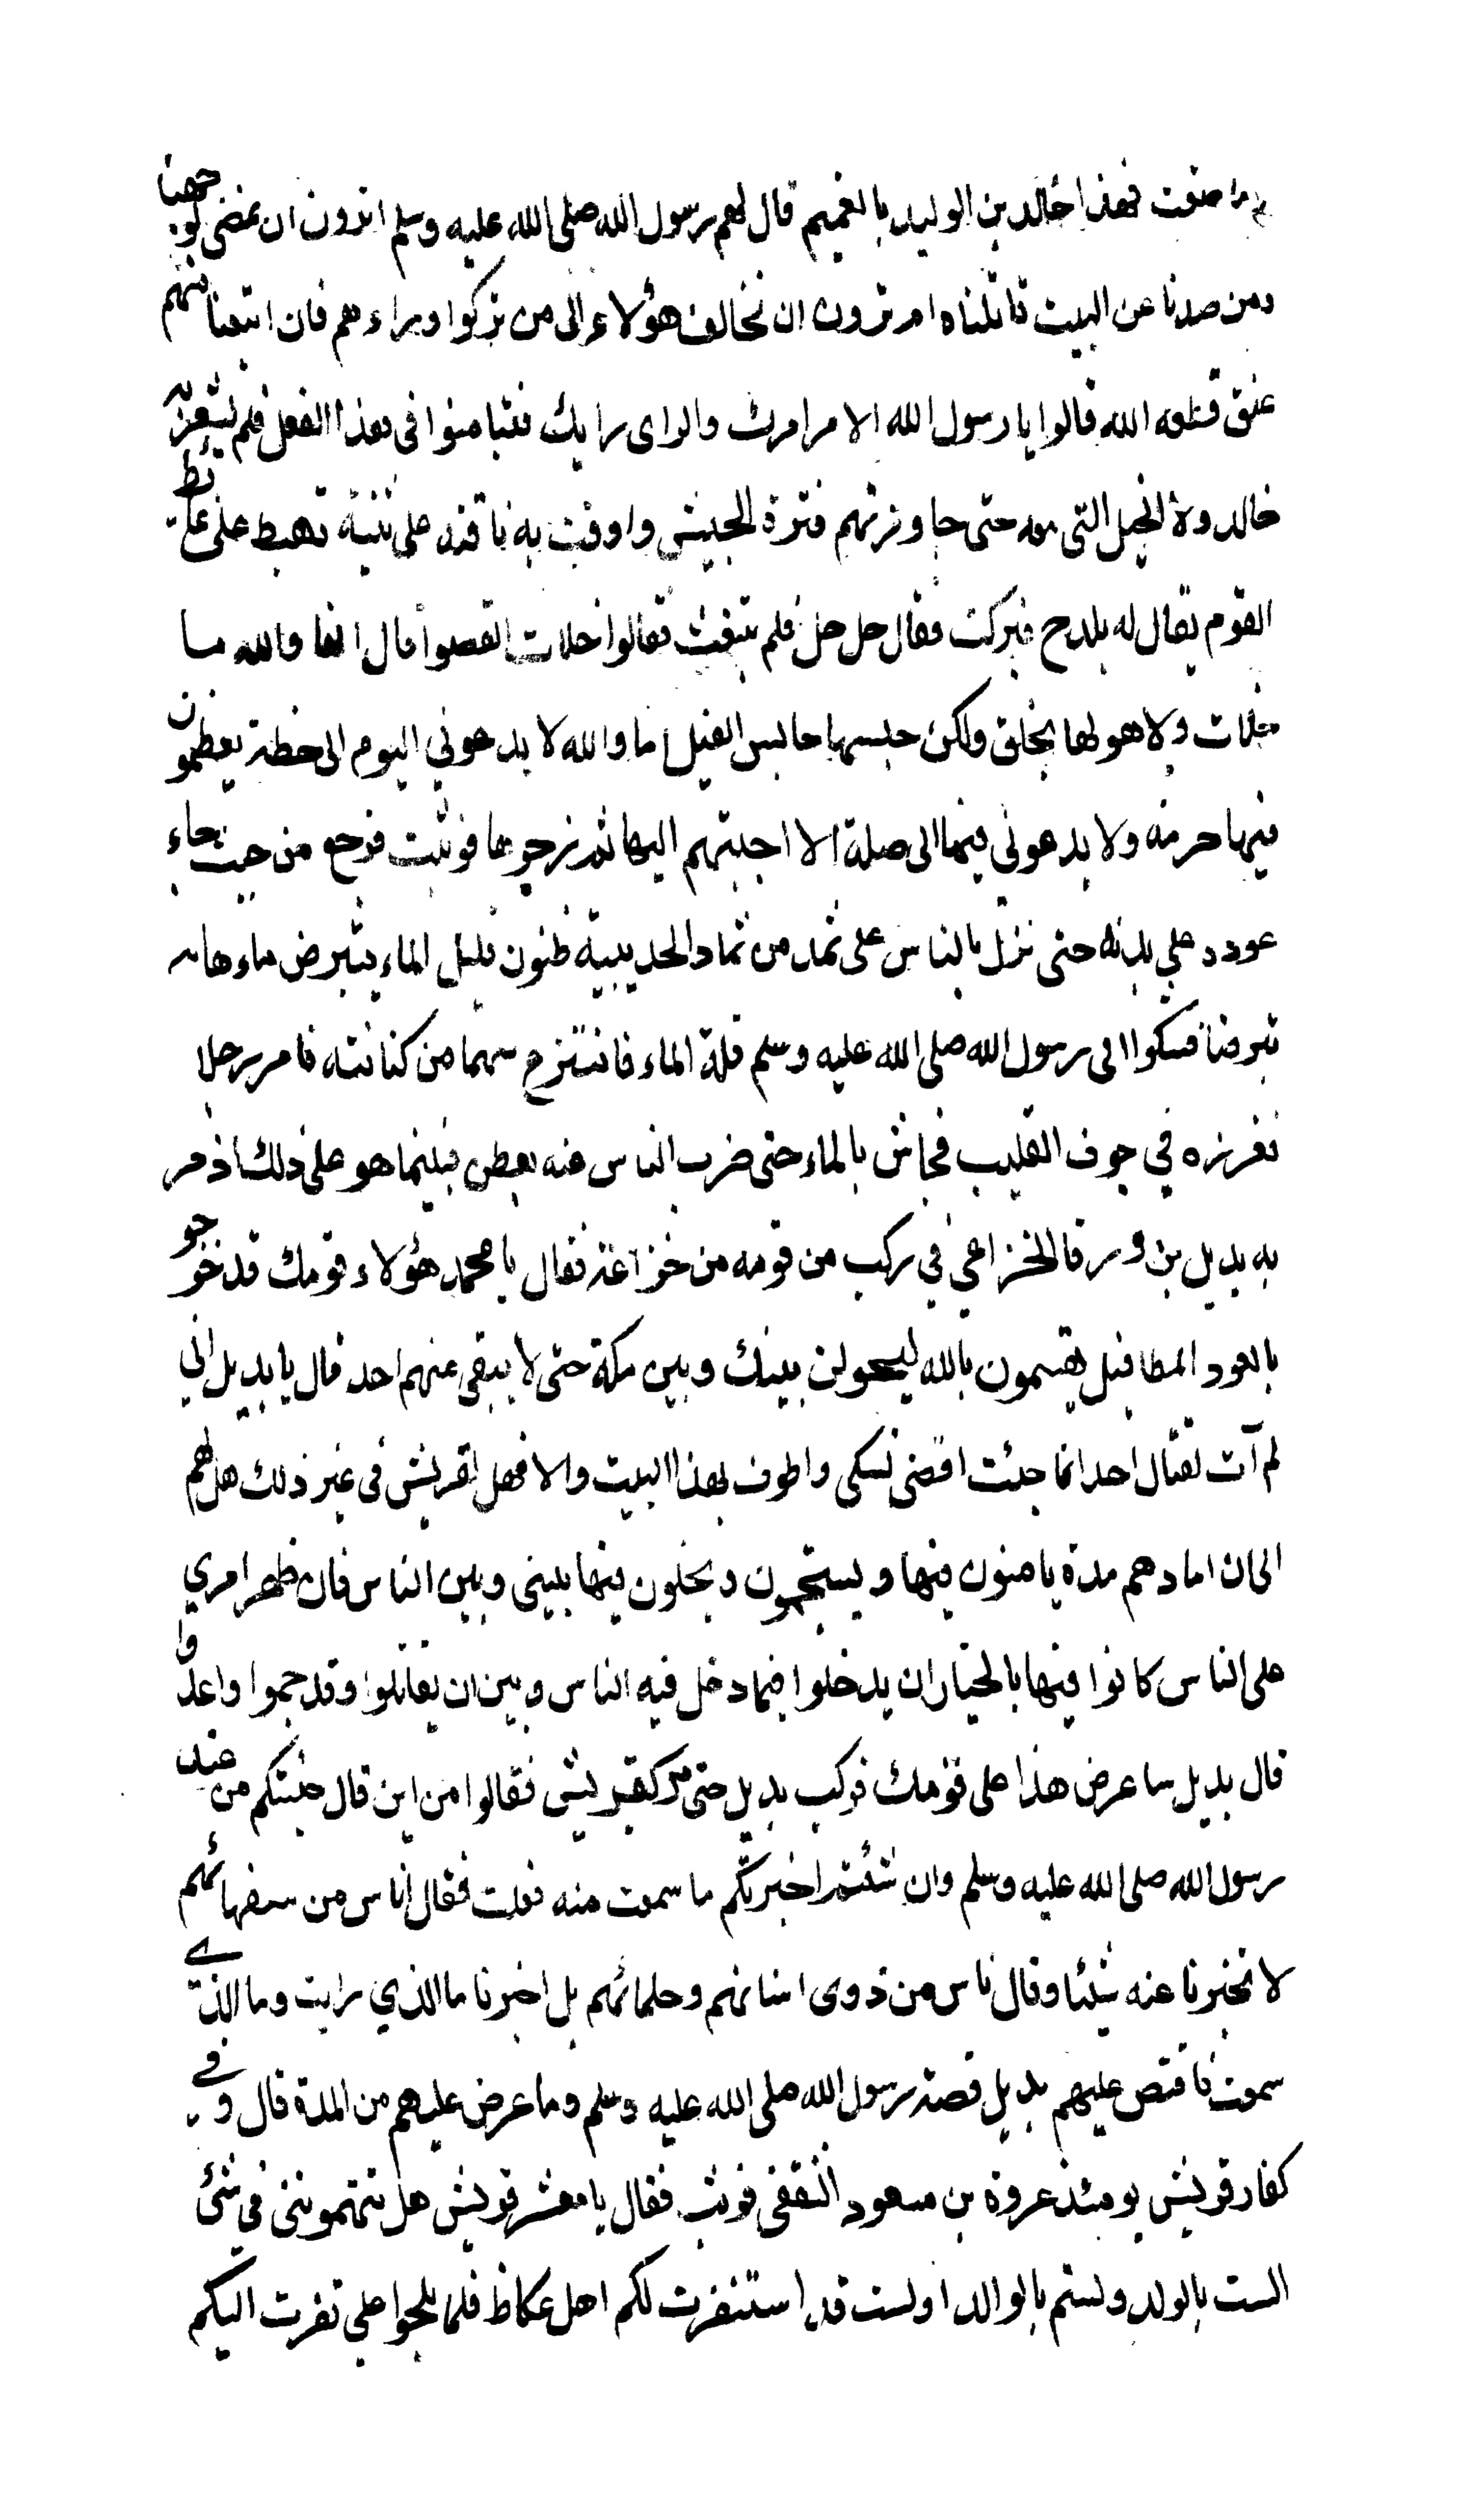 ما صنعت فهذا خالد بن الوليد بالغميم قال لهم رسول الله صلى الله عليه وسلم اترون ان نمضي لوجهنا
ومن صدنا عن البيت قاتلناه ام ترون ان نخالف هؤلاء الى من تركوا وراءهم فان اتبعنا منهم
عنق قطعه الله قالوا يا رسول الله الامر امرك والراى رايك فتيامنوا في هذا الفعل فلم يشعر به
خالد ولا الخيل التى معه حتى جاوز بهم فترة الجيش واوفت به ناقته على ثنية تهبط على غائط
القوم يقال له بلدح فبركت فقال حل حل فلم تنبعث فقالوا خلات القصوا قال انها والله ما
خلات ولا هو لها بخلق ولكن حبسها حابس الفيل اما والله لا يدعوني اليوم الى خطة يعظمون
فيها حرمة ولا يدعوني فيها الى صلة الا اجبتهم اليها ثم زجرها فوثبت فرجع من حيث جاء
عوده على بدئه حتى نزل بالناس على ثمد من ثماد الحديبية ظنون قليل الماء يتبرض ماءها
تبرضا فشكوا الى رسول الله صلى الله عليه وسلم قلة الماء فانتزع سهما من كنانته فامر رجلا
فغرزه في جوف القليب فجاش بالماء حتى ضرب الناس عنه بعطن فبينما هو على ذلك اذ مر
به بديل بن ورقا الخزاعي في ركب من قومه من خزاعة فقال يا محمد هؤلاء قومك قد خرجوا
بالعوذ المطافيل يقسمون بالله ليحولن بينك وبين مكة حتى لا يبقى منهم احد قال يا بديل اني
لم آت لقتال احد انما جئت اقضى نسكى واطوف بهذا البيت والا فهل لقريش في غير ذلك هل لهم
الى ان امادهم مدة يامنون فيها ويستجمون ويخلون فيها بيني وبين الناس فان ظهر امري
على الناس كانوا فيها بالخيار ان يدخلوا فيما دخل فيه الناس وبين ان يقاتلوا وقد جموا واعدوا
قال بديل ساعرض هذا على قومك فركب بديل حتى مر كقريش فقالوا من اين قال جئتكم من عند
رسول الله صلى الله عليه وسلم وان شئتم اخبرتكم ما سمعت منه فعلت فقال اناس من سفهائهم
لا تخبرنا عنه شيئا وقال ناس من ذوى اسنانهم وحلمائهم بل اخبرنا ما الذي رايت وما الذي
سمعت فاقتص عليهم بديل قصة رسول الله صلى الله عليه وسلم وما عرض عليهم من المدة قال وفي
كفار قريش يومئذ عروة بن مسعود الثقفى فوثب فقال يا معشر قريش هل تتهمونني في شئ
الست بالولد ولستم بالوالد اولست قد استنفرت لكم اهل عكاظ فلما بلحوا علي نفرت اليكم